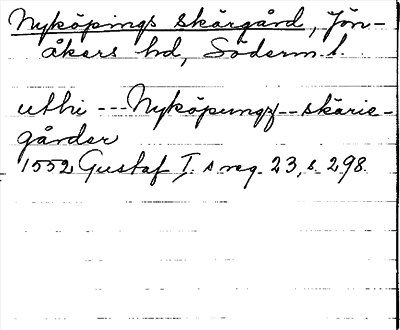 Nyköpings skärgård, Jön-
åkers hd, Söderm. l.
uthi --- Nyköpungz -- skärie-
gårder
1552 Gustaf I.s reg. 23, s. 298.